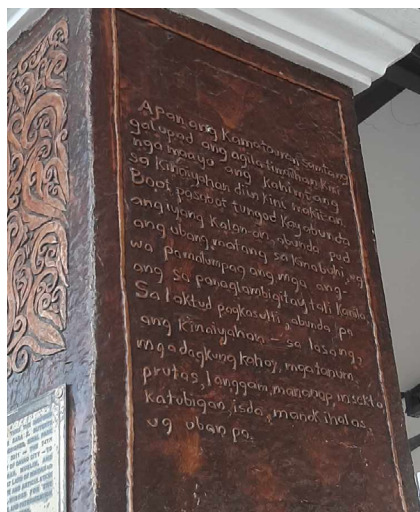 Apan ang kamatuuran samtang
galupad ang agila timailhan kini
nga maayo ang kahimtang
sa kinaiyahan diin kini makita.
Boot pasabot tungod kay abunda
ang iyang kalan-on, abunda pud
ang ubang matang sa kinabuhi, ug
wa pamalumpag ang mga ang-
ang sa panaglambigitay tali kanila
Sa laktud pagkasulti, abunda pa
ang kinaiyahan - sa lasang,
mga dagkung kahoy, mga tanum,
prutas, langgam, mananap, insekto,
katubigan, isda, manok ihalas,
ug uban pa.